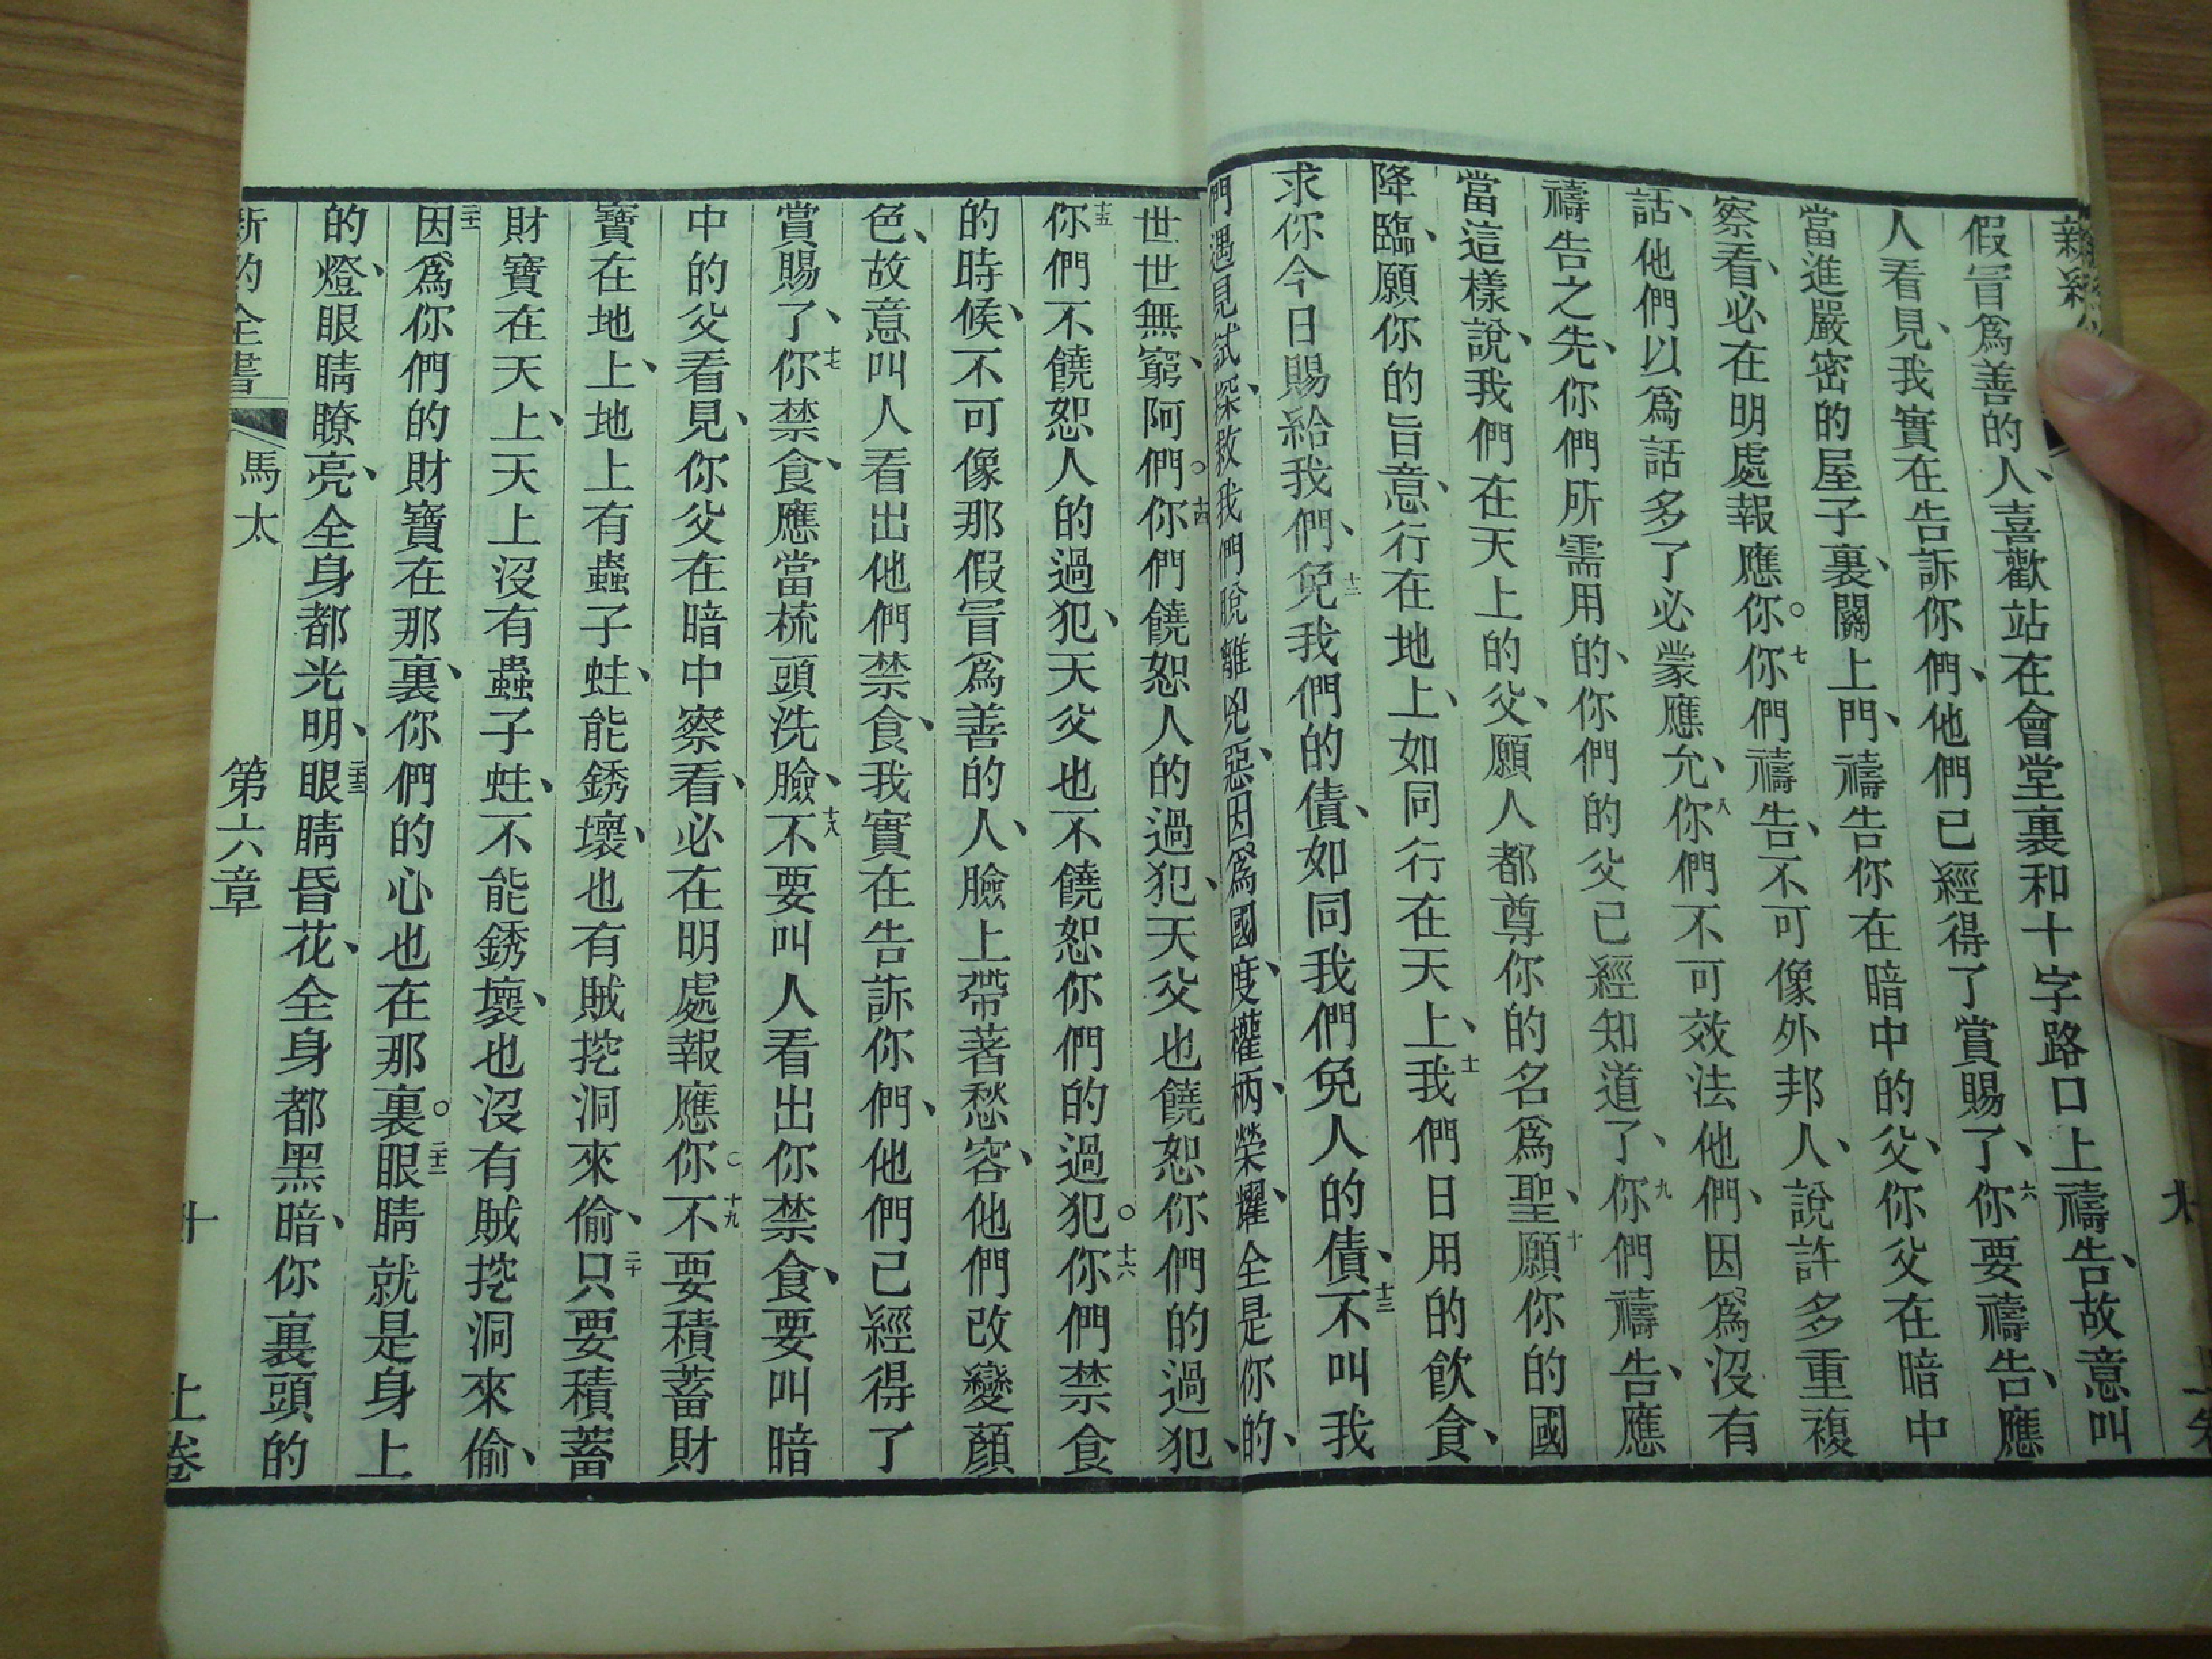 假冒爲善的人、喜歡站在會堂裏和十字路口上禱告、故意叫
人看見、我實在告訴你們、他們已經得了賞賜了、六你要禱告、應
當進嚴密的屋子裏、關上門、禱告你在暗中的父、你父在暗中
察看、必在明處報應你。七你們禱告、不可像外邦人、說許多重複
話、他們以爲話多了必蒙應允、八你們不可效法他們、因爲沒有
禱告之先、你們所需用的、你們的父已經知道了、九你們禱告、應
當這樣說、我們在天上的父、願人都尊你的名爲聖、十願你的國
降臨、願你的旨意、行在地上、如同行在天上、十一我們日用的飲食、
求你今日賜給我們、十二免我們的債、如同我們免人的債、十三不叫我
們遇見試探、救我們脫離兇惡、因爲國度、權柄、榮耀、全是你的、
世世無窮、阿們。十四你們饒恕人的過犯、天父也饒恕你們的過犯、
十五你們不饒恕人的過犯、天父也不饒恕你們的過犯。十六你們禁食
的時候、不可像那假冒爲善的人、臉上帶著愁容、他們改變顏
色、故意叫人看出他們禁食、我實在告訴你們、他們已經得了
賞賜了、十七你禁食、應當梳頭洗臉、十八不要叫人看出你禁食、要叫暗
中的父看見、你父在暗中察看、必在明處報應你。十九不要積蓄財
寶在地上、地上有蟲子蛀、能銹壞、也有賊挖洞來偷、二十只要積蓄
財寶在天上、天上沒有蟲子蛀、不能銹壞、也沒有賊挖洞來偷、
二十一因爲你們的財寶在那裏、你們的心也在那裏。二十二眼睛就是身上
的燈、眼睛瞭亮、全身都光明、二十三眼睛昏花、全身都黑暗、你裏頭的
新約全書 馬太 第六章 十 上卷